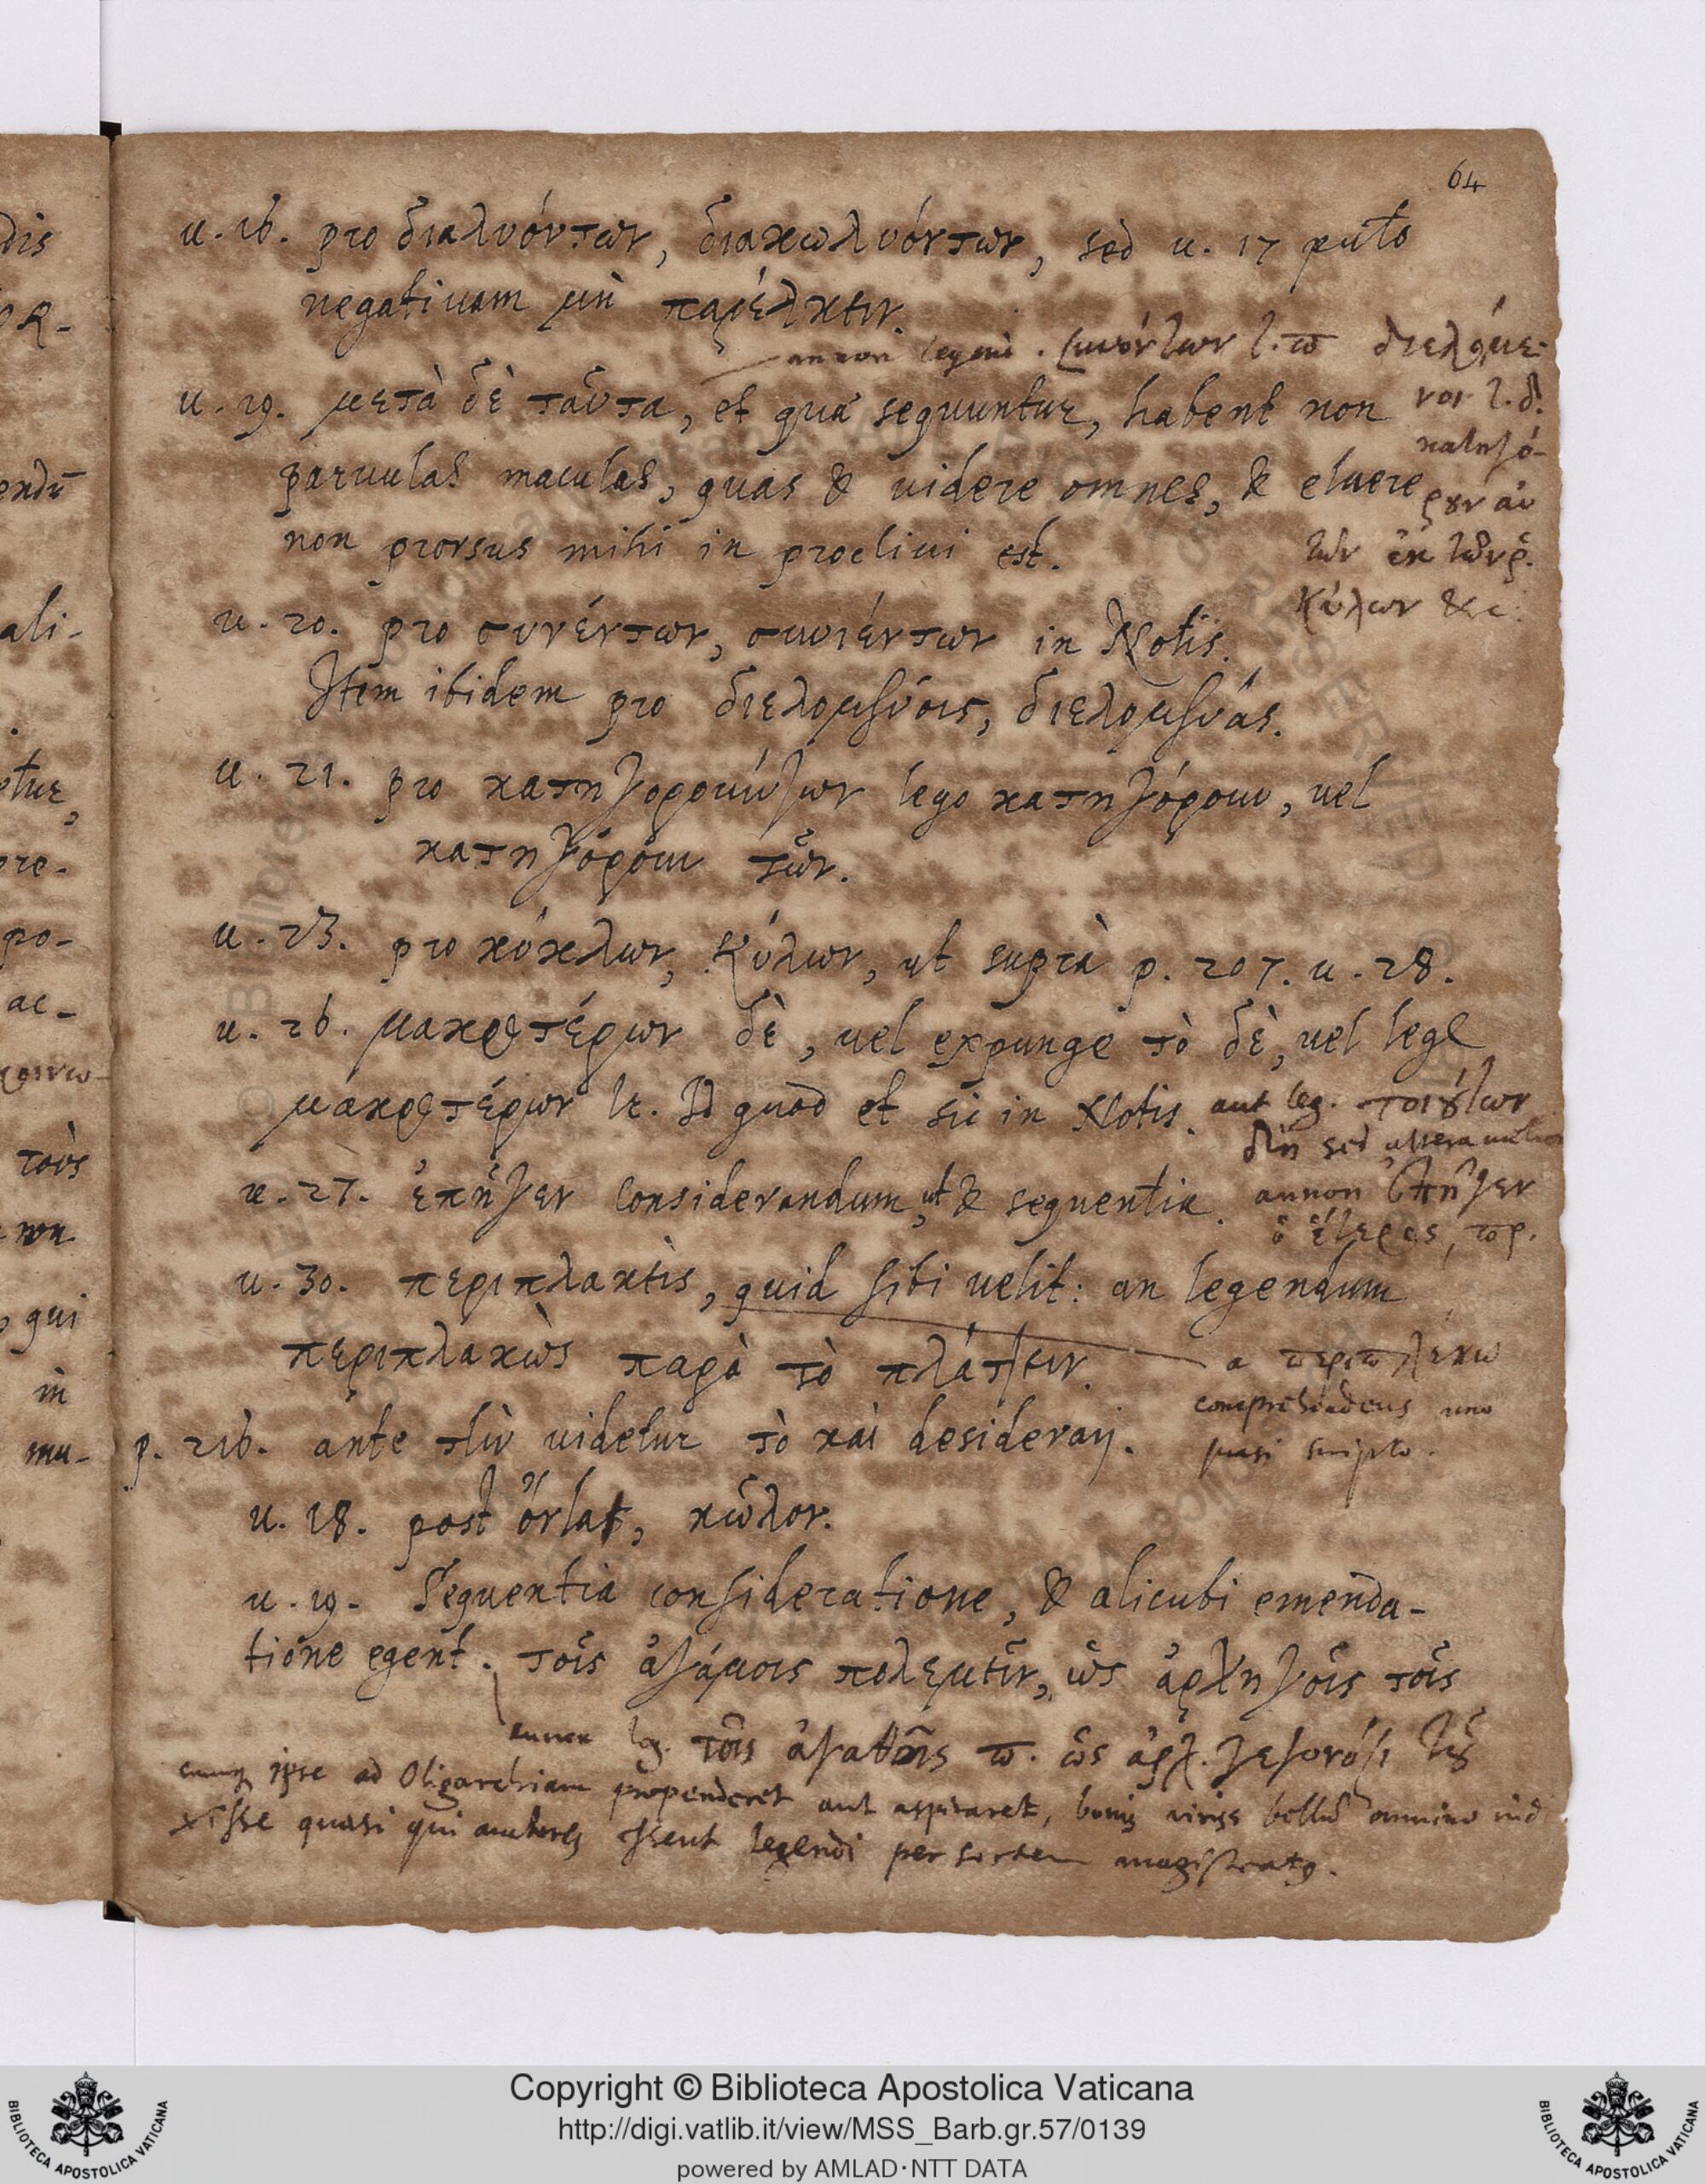 64
u. 16. pro διαλυόντων, διακωλυόντων, sed u. 17 puto
negatiuam μὴ παρέλκειν.
annon legend. συνόντων τ. π διελόμε-
νοι τ. δ.
κατηγό-
ρουν αὐ
τῶν ἐκ τῶν ρ.
Κύλων &c.
u. 19. μετὰ δὲ ταῦτα, et quæ sequuntur, habent non
paruulas maculas, quas & uidere omnes, & eluere
non prorsus mihi in procliui est.
u. 20. pro συνέντων, συνιέντων in Notis.
Item ibidem pro διελομένοις, διελομένας.
u. 21. pro κατηγορούντων lego κατηγόρουν, uel
κατηγόρουν τῶν.
u. 23. pro κύκλων, Κύλων, ut suprà p. 207. u. 28.
u. 26. μακροτέρων δὲ, uel expunge τὸ δὲ, uel lege
μακροτέρων Id quod et sic in Notis.
aut leg. τοιούτων
δὴ sed altera
u. 27. ἐπῆγεν considerandum, ut & sequentia.
annon ἐπῆγεν
ὁ ἕτερος, πρ.
u. 30. περιπλακεὶς, quid sibi uelit: an legendum
περιπλακὼς παρὰ τὸ πλάττειν.
a περιπλέκω
comprehendens uno
quasi scripto.
p. 216. ante τὴν uidetur τὸ καὶ desiderarj.
u. 18. post ὄντα, κῶλον.
u. 19. Sequentia consideratione, & alicubi emenda-
tione egent. τοῖς ἀγάμοις πολεμεῖν, ὡς ἀρχηγοῖς τοῖς
annon leg. τοῖς ἀγαθοῖς π. ὡς ἀρχ. γεγονόσι τοῦ
cumq ipse ad Oligarchiam propenderet aut aspiraret, bonis viris bellũ omnino indi
xisse quasi qui auctores essent legendi per sortem magistratus.
Copyright © Biblioteca Apostolica Vaticana
http://digi.vatlib.it/view/MSS_Barb.gr.57/0139
powered by AMLAD·NTT DATA
BIBLIOTECA APOSTOLICA VATICANA
BIBLIOTECA APOSTOLICA VATICANA